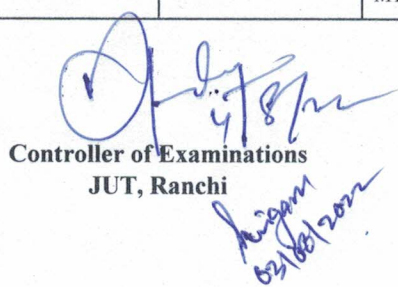 4/8/22
Controller of Examinations
JUT, Ranchi
03/08/2022